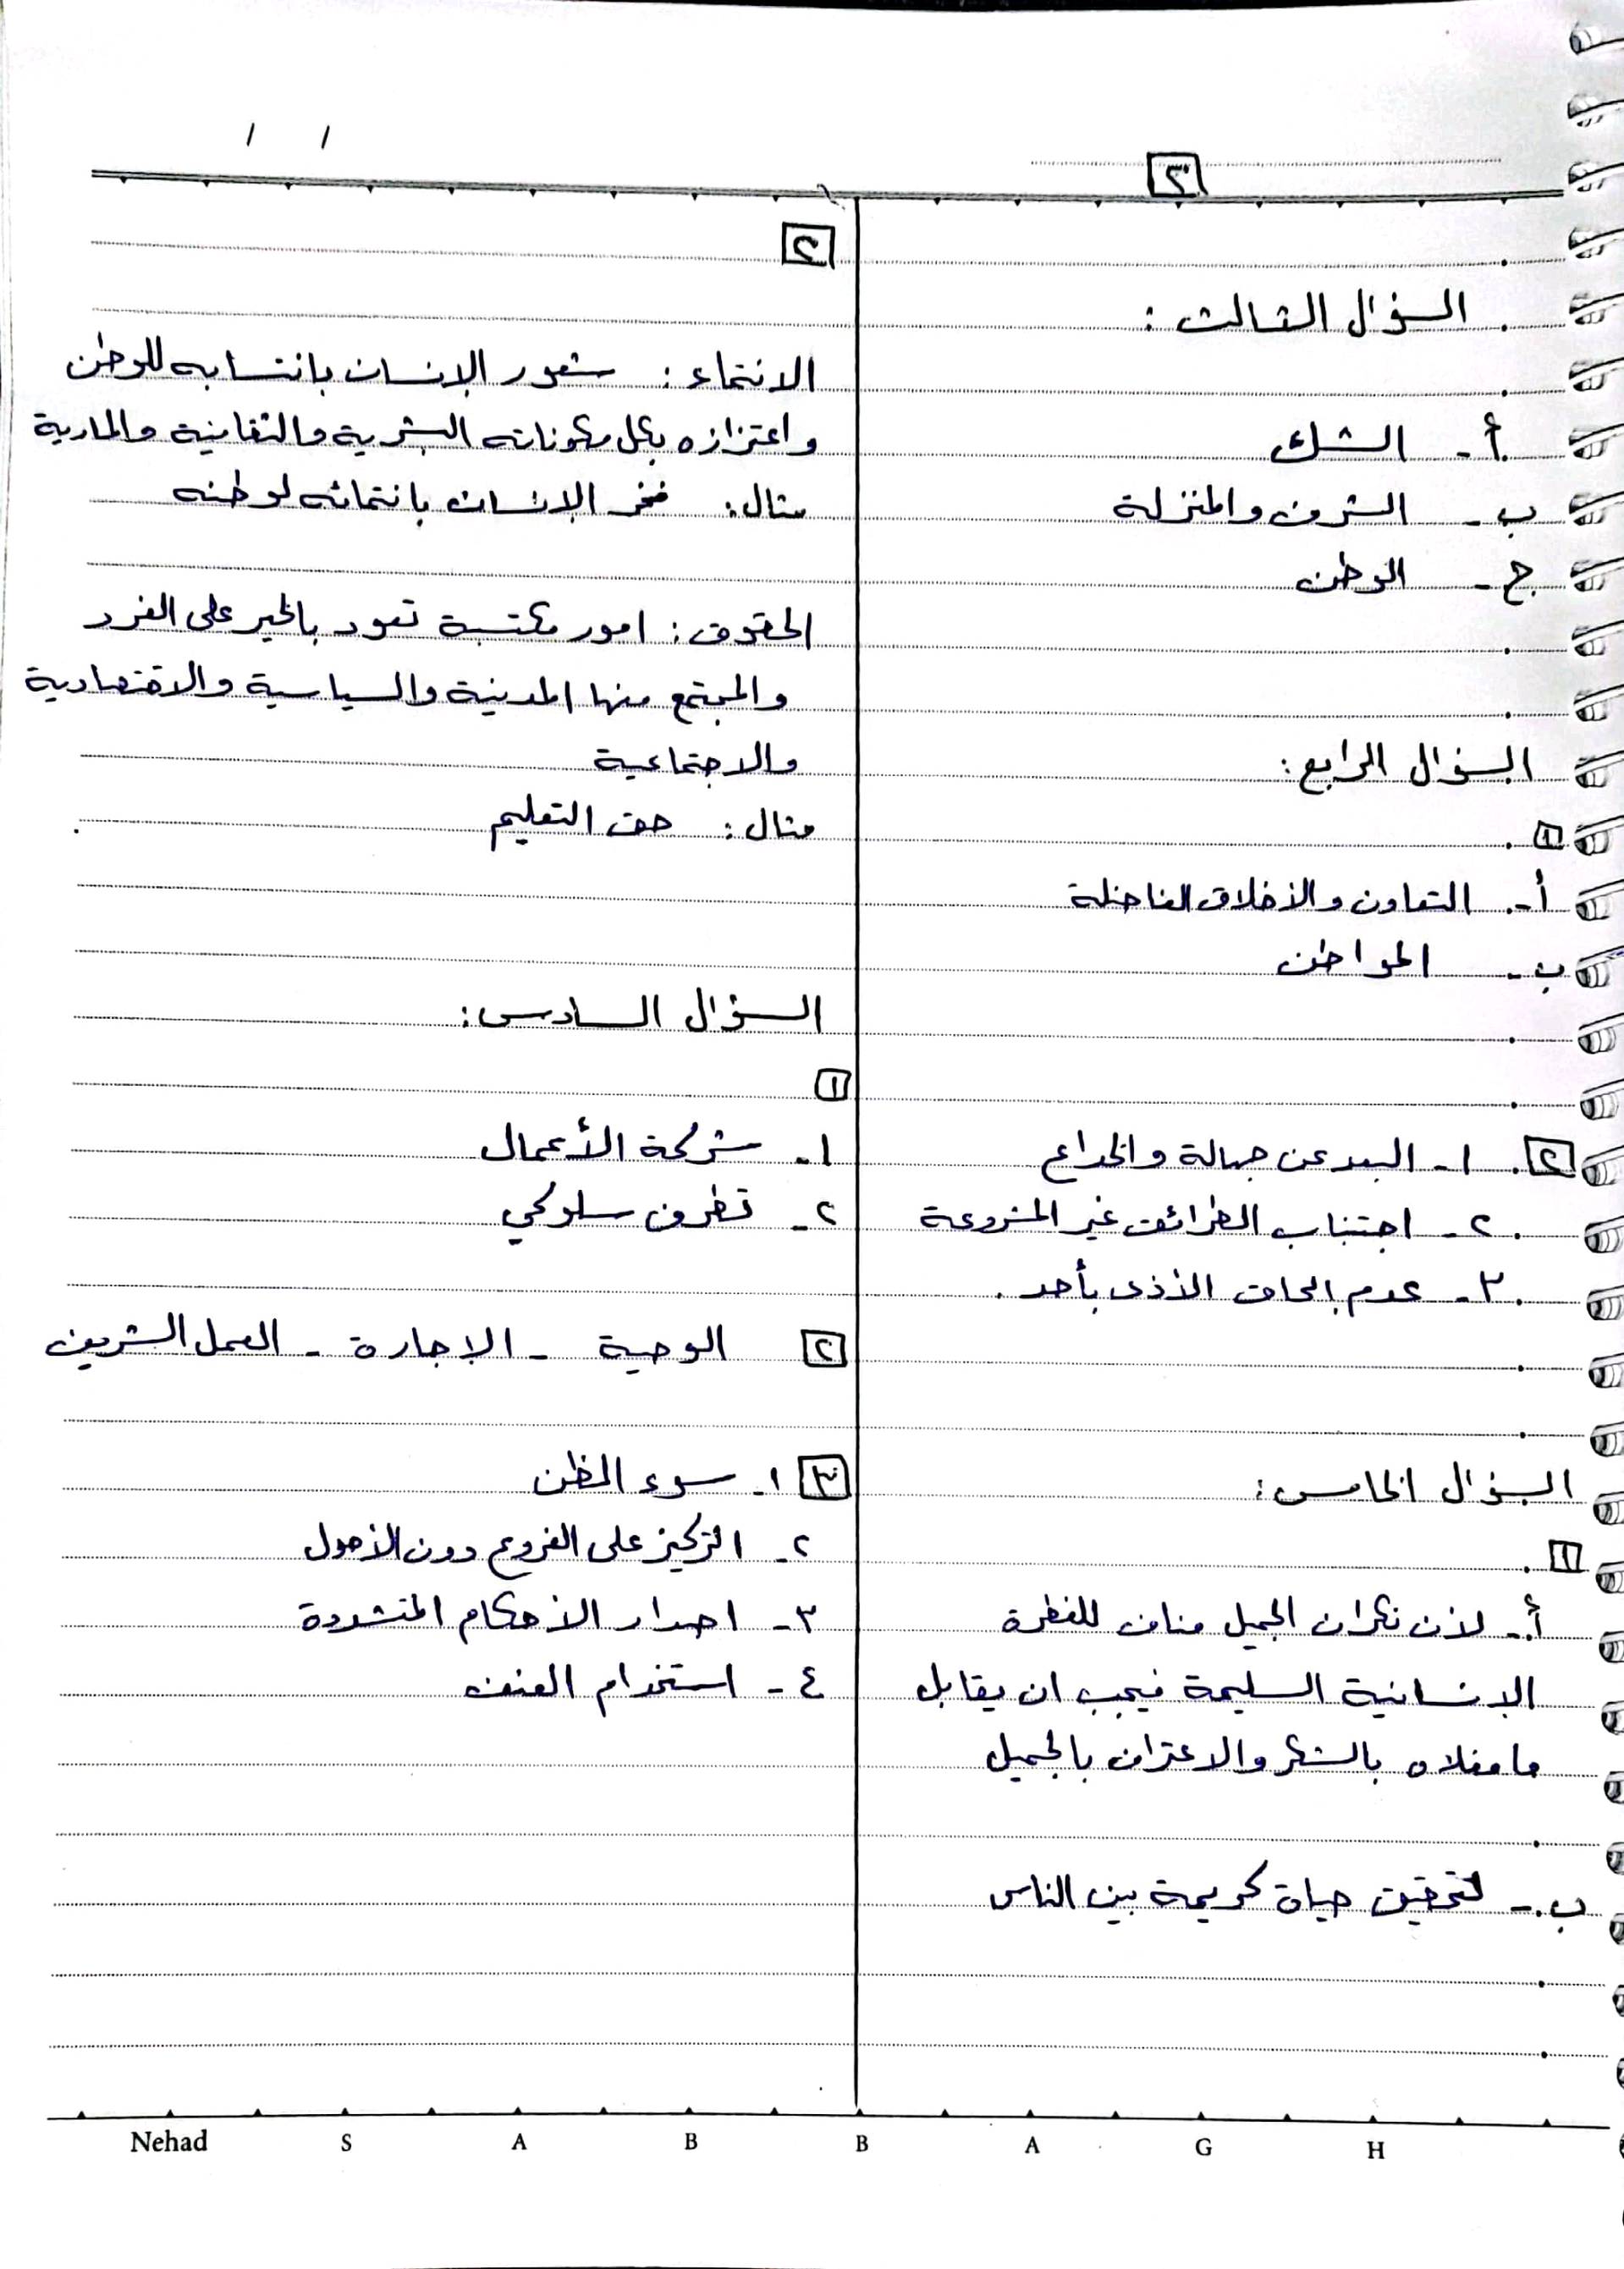 ٢
السؤال الثالث :
أ - الشك
ب - الشرف والمنزلة
ج - الوطن
السؤال الرابع :
١
أ - التعاون والأخلاق الفاضلة
ب - المواطن
٢ ١ - البعد عن جهالة والخداع
٢ - اجتناب الطرائق غير المشروعة
٣ - عدم إلحاق الأذى بأحد .
السؤال الخامس :
١
أ - لأن نكران الجميل مناف للفطرة
الإنسانية السليمة فيجب ان يقابل
ما فعلاه بالشكر والاعتراف بالجميل
ب - لتحقيق حياة كريمة بين الناس
٢
الانتماء : شعور الإنسان بانتسابه للوطن
واعتزازه بكل مكوناته البشرية والثقافية والمادية
مثال : فخر الإنسان بانتمائه لوطنه
الحقوق : امور مكتسبة تعود بالخير على الفرد
والمجتمع منها المدنية والسياسية والاقتصادية
والاجتماعية
مثال : حق التعليم
السؤال السادس :
١
١ - شركة الأعمال
٢ - تطرف سلوكي
٢ الوصية - الإجارة - العمل الشريف
٣ ١ - سوء الظن
٢ - التركيز على الفروع دون الأصول
٣ - اصدار الأحكام المتشددة
٤ - استخدام العنف
Nehad S A B B A G H